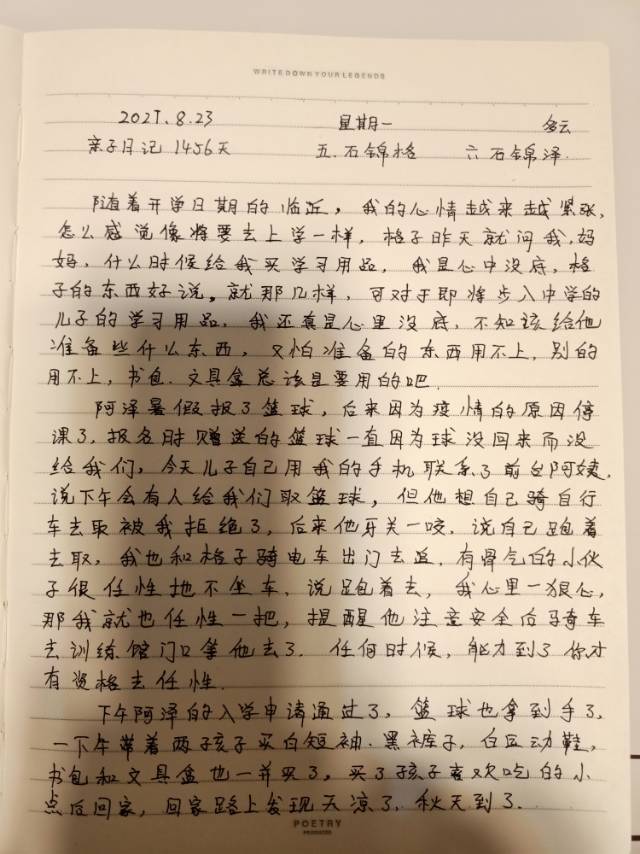 WRITE DOWN YOUR LEGENDS
2021.8.23 星期一 多云
亲子日记1456天 五.石锦格 六石锦泽.
随着开学日期的临近，我的心情越来越紧张，
怎么感觉像将要去上学一样，格子昨天就问我，妈
妈，什么时候给我买学习用品，我是心中没底，格
子的东西好说。就那几样，可对于即将步入中学的
儿子的学习用品，我还真是心里没底，不知该给他
准备些什么东西，又怕准备的东西用不上，别的
用不上，书包.文具盒总该是要用的吧.
阿泽暑假报了篮球，后来因为疫情的原因停
课了，报名时赠送的篮球一直因为球没回来而没
给我们，今天儿子自己用我的手机联系了前台阿姨，
说下午会有人给我们取篮球，但他想自己骑自行
车去取被我拒绝了，后来他牙关一咬，说自己跑着
去取，我也和格子骑电车出门去逛，有骨气的小伙
子很任性地不坐车，说跑着去，我心里一狠心，
那我就也任性一把，提醒他注意安全后骑车
去训练馆门口等他去了.任何时候，能力到了你才
有资格去任性.
下午阿泽的入学申请通过了，篮球也拿到手了，
一下午带着两孩子买白短袖.黑裤子，白运动鞋，
书包和文具盒也一并买了，买了孩子喜欢吃的小
点后回家，回家路上发现天凉了，秋天到了..
POETRY